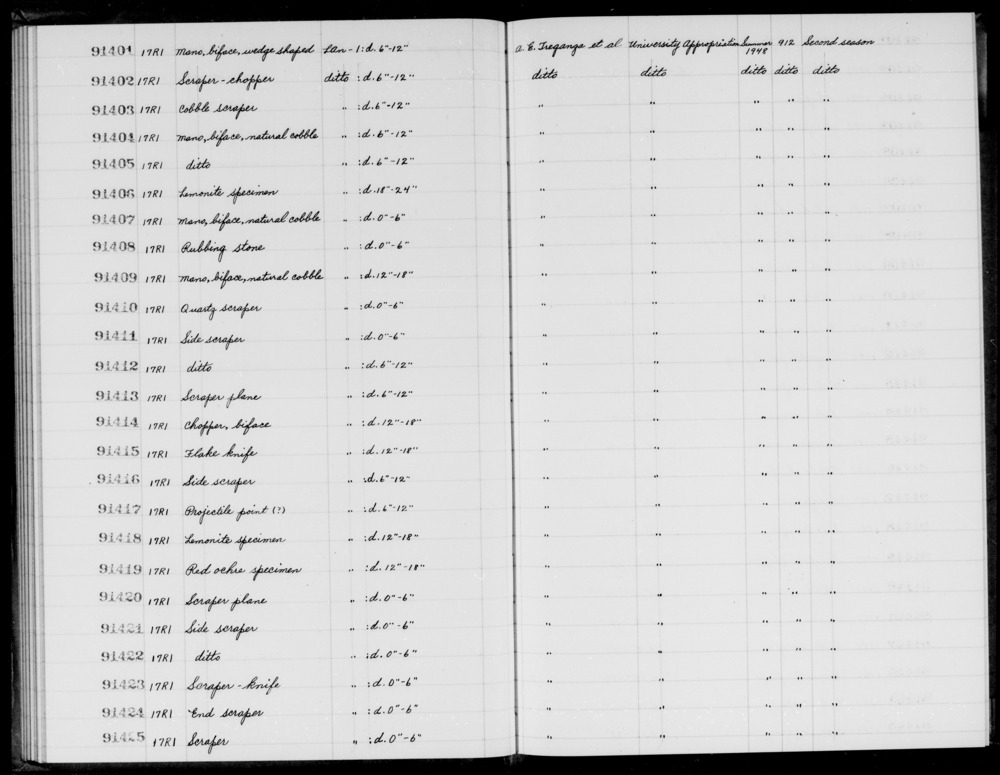 91401 17R1 Mano, biface, wedge shaped Lan-1: d. 6"-12" A. E. Treganza et al University Appropriation Summer 1948 912 Second season
91402 17R1 Scraper-chopper ditto : d. 6"-12" ditto ditto ditto ditto ditto
91403 17R1 Cobble scraper " : d. 6"-12" " " " " "
91404 17R1 Mano, biface, natural cobble " : d. 6"-12" " " " " "
91405 17R1 ditto " : d. 6"-12" " " " " "
91406 17R1 Lemonite specimen " : d. 18"-24" " " " " "
91407 17R1 Mano, biface, natural cobble " : d. 0"-6" " " " " "
91408 17R1 Rubbing stone " : d. 0"-6" " " " " "
91409 17R1 Mano, biface, natural cobble " : d. 12"-18" " " " " "
91410 17R1 Quartz scraper " : d. 0"-6" " " " " "
91411 17R1 Side scraper " : d. 0"-6" " " " " "
91412 17R1 ditto " : d. 6"-12" " " " " "
91413 17R1 Scraper plane " : d. 6"-12" " " " " "
91414 17R1 Chopper, biface " : d. 12"-18" " " " " "
91415 17R1 Flake knife " : d. 12"-18" " " " " "
91416 17R1 Side scraper " : d. 6"-12" " " " " "
91417 17R1 Projectile point (?) " : d. 6"-12" " " " " "
91418 17R1 Lemonite specimen " : d. 12"-18" " " " " "
91419 17R1 Red ochre specimen " : d. 12"-18" " " " " "
91420 17R1 Scraper plane " : d. 0"-6" " " " " "
91421 17R1 Side scraper " : d. 0"-6" " " " " "
91422 17R1 ditto " : d. 0"-6" " " " " "
91423 17R1 Scraper-knife " : d. 0"-6" " " " " "
91424 17R1 End scraper " : d. 0"-6" " " " " "
91425 17R1 Scraper " : d. 0"-6" " " " " "